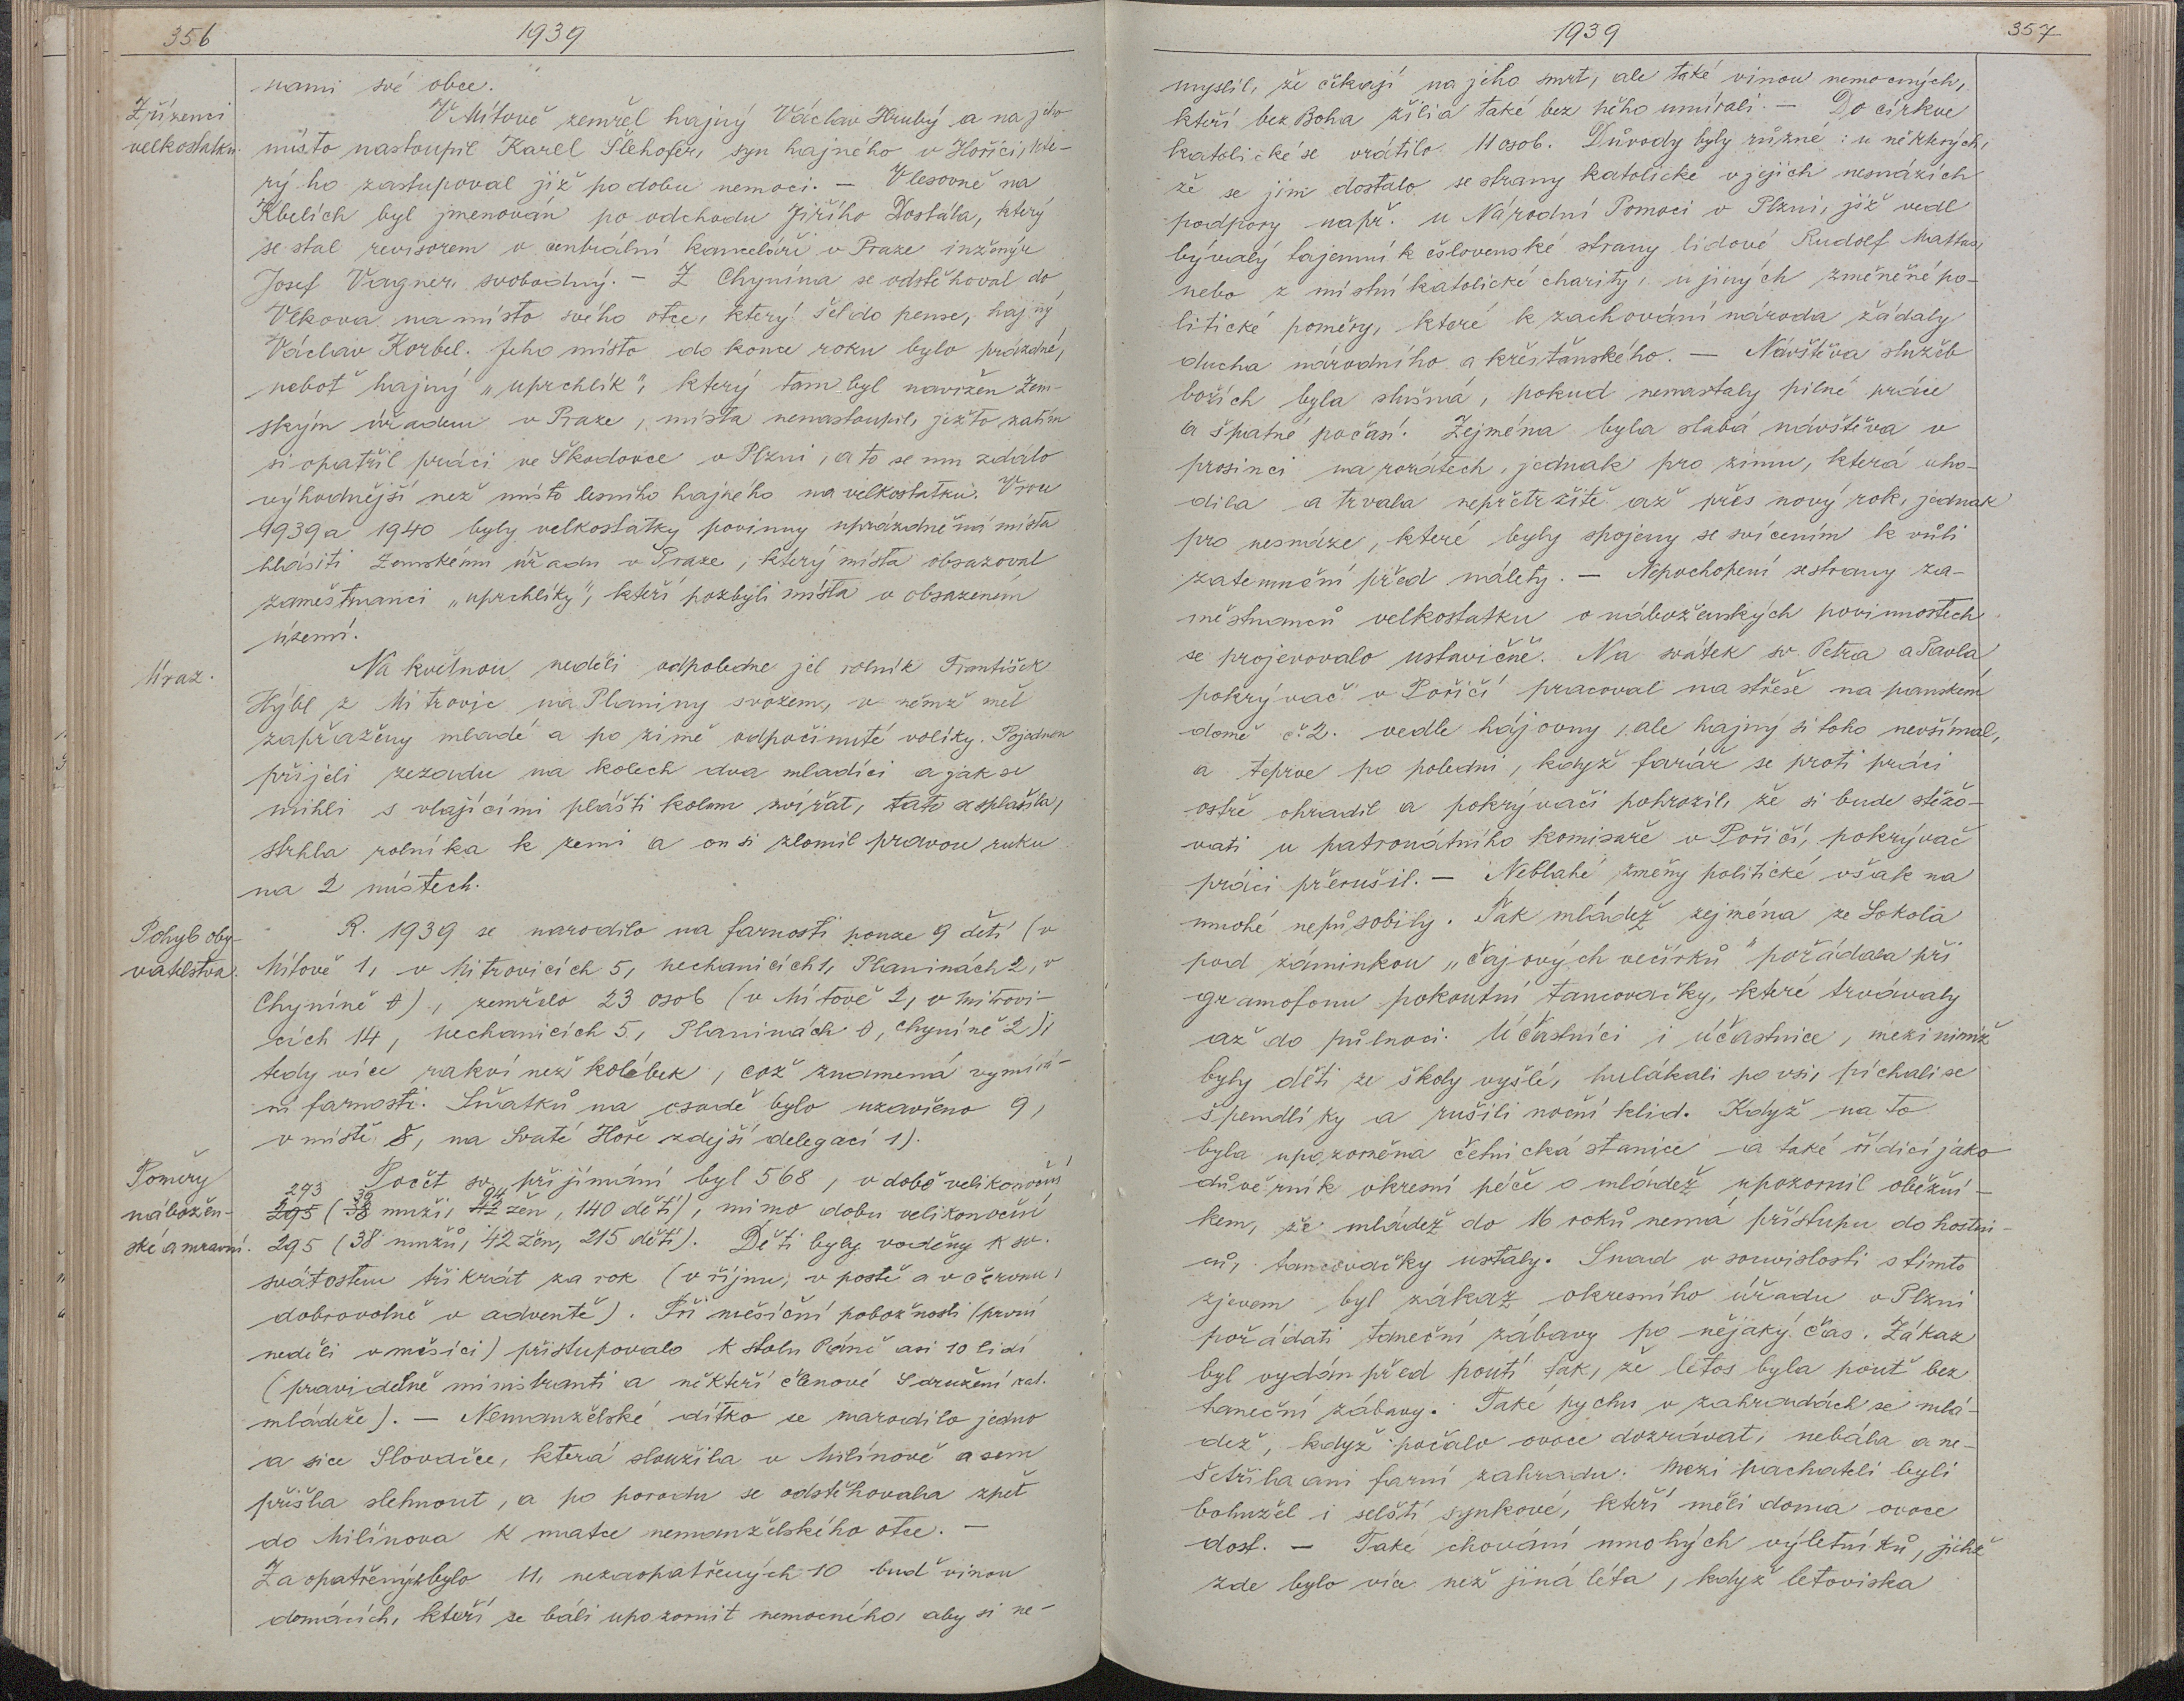 356
1939
nami své obce.
Zřízenci
velkostatku.
V Mítově zemřel hajný Václav Hrubý a na jeho
místo nastoupil Karel Šlehofer, syn hajného v Hořici, kte-
rý ho zastupoval již po dobu nemoci. — V lesovně na
Kbelích byl jmenován po odchodu Jiřího Dostála, který
se stal revisorem v centrální kanceláři v Praze inženýr
Josef Vagner, svobodný. — Z Chynína se odstěhoval do
Vlkova na místo svého otce, který šel do pense, hajný
Václav Korbel. Jeho místo do konce roku bylo prázdné,
neboť hajný „uprchlík", který tam byl navržen Zem-
ským úřadem v Praze, místa nenastoupil, ježto zatím
si opatřil práci ve Škodovce v Plzni, a to se mu zdálo
výhodnější než místo lesního hajného na velkostatku. V rou
1939 a 1940 byly velkostatky povinny uprázdněná místa
hlásiti Zemskému úřadu v Praze, který místa obsazoval
zaměstnanci „uprchlíky", kteří pozbyli místa v obsazeném
území.
Úraz.
Na květnou neděli odpoledne jel rolník František
Hýbl z Mitrovic na Planiny s vozem, v němž měl
zapřaženy mladé a po zimě odpočinuté volíky. Pojednou
přijeli zezadu na kolech dva mladíci a jak se
mihli s vlajícími plášti kolem zvířat, tato se splašila,
strhla rolníka k zemi a on si zlomil pravou ruku
na 2 místech.
Pohyb oby-
vatelstva.
R. 1939 se narodilo na farnosti pouze 9 dětí (v
Mítově 1, v Mitrovicích 5, Nechanicích 1, Planinách 2, v
Chyníně 0), zemřelo 23 osob (v Mítově 2, v Mitrovi-
cích 14, Nechanicích 5, Planinách 0, Chyníně 2);
tedy více rakví než kolébek, což znamená vymírá-
ní farnosti. Sňatků na osadě bylo uzavřeno 9,
v místě 8, na Svaté Hoře zdejší delegací 1).
Poměry
nábožen-
ské a mravní.
Počet sv. přijímání byl 568, v době velikonoční
273 39 94
295 (38 muži, 42 žen, 140 dětí), mimo dobu velikonoční
295 (38 mužů, 42 žen, 215 dětí). Děti byly voděny k sv.
svátostem třikrát za rok (v říjnu, v postě a v červnu,
dobrovolně v adventě). Při měsíční pobožnosti (první
neděli v měsíci) přistupovalo k stolu Páně asi 10 lidí
(pravidelně ministranti a někteří členové Sdružení kat.
mládeže). — Nemanželské dítko se narodilo jedno
a sice Slovače, která sloužila v Milínově a sem
přišla slehnout, a po porodu se odstěhovala zpět
do Milínova k matce nemanželského otce. —
Zaopatřených bylo 11, nezaopatřených 10 buď vinou
domácích, kteří se báli upozornit nemocného, aby si ne-
1939
357
myslil, že čekají na jeho smrt, ale také vinou nemocných,
kteří bez Boha žili a také bez něho umírali. — Do církve
katolické se vrátilo 11 osob. Důvody byly různé: u některých,
že se jim dostalo se strany katolické v jejich nesnázích
podpory např. u Národní Pomoci v Plzni, již vedl
bývalý tajemník čslovenské strany lidové Rudolf Mattas,
nebo z místní katolické charity, u jiných změněné po-
litické poměry, které k zachování národa žádaly
ducha národního a křesťanského. — Návštěva služeb
božích byla slušná, pokud nenastaly pilné práce
a špatné počasí. Zejména byla slabá návštěva v
prosinci na rorátech, jednak pro zimu, která uho-
dila a trvala nepřetržitě až přes nový rok, jednak
pro nesnáze, které byly spojeny se svícením k vůli
zatemnění před nálety. — Nepochopení se strany za-
městnanců velkostatku o náboženských povinnostech
se projevovalo ustavičně. Na svátek sv. Petra a Pavla
pokrývač v Poříčí pracoval na střeše na panském
domě č. 2. vedle hájovny, ale hajný si toho nevšímal,
a teprve po poledni, když farář se proti práci
ostře ohradil a pokrývači pohrozil, že si bude stěžo-
vati u patronátního komisaře v Poříčí, pokrývač
práci přerušil. — Neblahé změny politické však na
mnohé nepůsobily. Tak mládež zejména ze Sokola
pod záminkou „čajových večírků" pořádala při
gramofonu pokoutní tancovačky, které trvávaly
až do půlnoci. Účastníci i účastnice, mezi nimiž
byly děti ze školy vyšlé, hulákali po vsi, píchali se
špendlíky a rušili noční klid. Když na to
byla upozorněna četnická stanice a také řídící jako
důvěrník okresní péče o mládež upozornil oběžní-
kem, že mládež do 16 roků nemá přístupu do hostin-
ců, tancovačky ustaly. Snad v souvislosti s tímto
zjevem byl zákaz okresního úřadu v Plzni
pořádati taneční zábavy po nějaký čas. Zákaz
byl vydán před poutí tak, že letos byla pouť bez
taneční zábavy. Také pychu v zahradách se mlá-
dež, když počalo ovoce dozrávat, nebála a ne-
šetřila ani farní zahradu. Mezi pachateli byli
bohužel i selští synkové, kteří měli doma ovoce
dost. — Také chování mnohých výletníků, jichž
zde bylo více než jiná léta, když letoviska